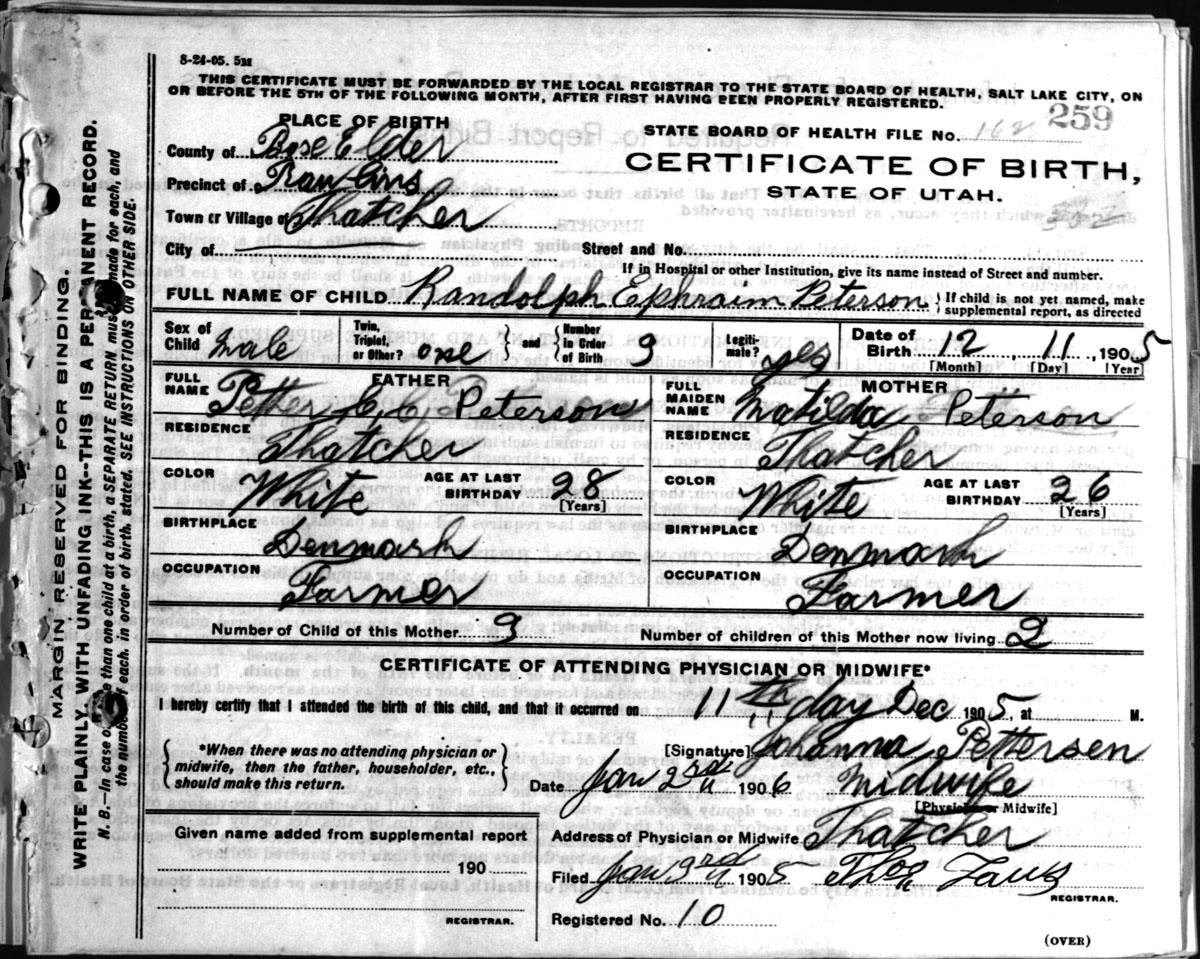 8-24-05. 5M
THIS CERTIFICATE MUST BE FORWARDED BY THE LOCAL REGISTRAR TO THE STATE BOARD OF HEALTH, SALT LAKE CITY, ON
OR BEFORE THE 5TH OF THE FOLLOWING MONTH, AFTER FIRST HAVING BEEN PROPERLY REGISTERED.
PLACE OF BIRTH
STATE BOARD OF HEALTH FILE No. 162 259
County of Box Elder
CERTIFICATE OF BIRTH,
Precinct of Rawlins
STATE OF UTAH.
Town or Village of Thatcher
City of
Street and No.
If in Hospital or other Institution, give its name instead of Street and number.
FULL NAME OF CHILD Randolph Ephraim Peterson } If child is not yet named, make
supplemental report, as directed
Sex of Child Male Twin, Triplet, or Other? one } and { Number in Order of Birth 3 Legiti-mate? yes Date of Birth 12, 11, 1905
[Month] [Day] [Year]
FATHER MOTHER
FULL NAME Petter C. C. Peterson FULL MAIDEN NAME Matilda Peterson
RESIDENCE Thatcher RESIDENCE Thatcher
COLOR White AGE AT LAST BIRTHDAY 28 [Years] COLOR White AGE AT LAST BIRTHDAY 26 [Years]
BIRTHPLACE Denmark BIRTHPLACE Denmark
OCCUPATION Farmer OCCUPATION Farmer
Number of Child of this Mother 3 Number of children of this Mother now living 2
CERTIFICATE OF ATTENDING PHYSICIAN OR MIDWIFE*
I hereby certify that I attended the birth of this child, and that it occurred on 11th day Dec 1905, at M.
*When there was no attending physician or
midwife, then the father, householder, etc.,
should make this return.
[Signature] Johanna Pettersen
Date Jan 2rd 1906 Midwife
[Physician or Midwife]
Given name added from supplemental report
Address of Physician or Midwife Thatcher
190
Filed Jan 3rd 1905 Thos
REGISTRAR.
REGISTRAR.
Registered No. 10
(OVER)
MARGIN RESERVED FOR BINDING.
WRITE PLAINLY, WITH UNFADING INK--THIS IS A PERMANENT RECORD.
N. B.--In case of more than one child at a birth, a SEPARATE RETURN must be made for each, and
the number of each, in order of birth, stated. SEE INSTRUCTIONS ON OTHER SIDE.